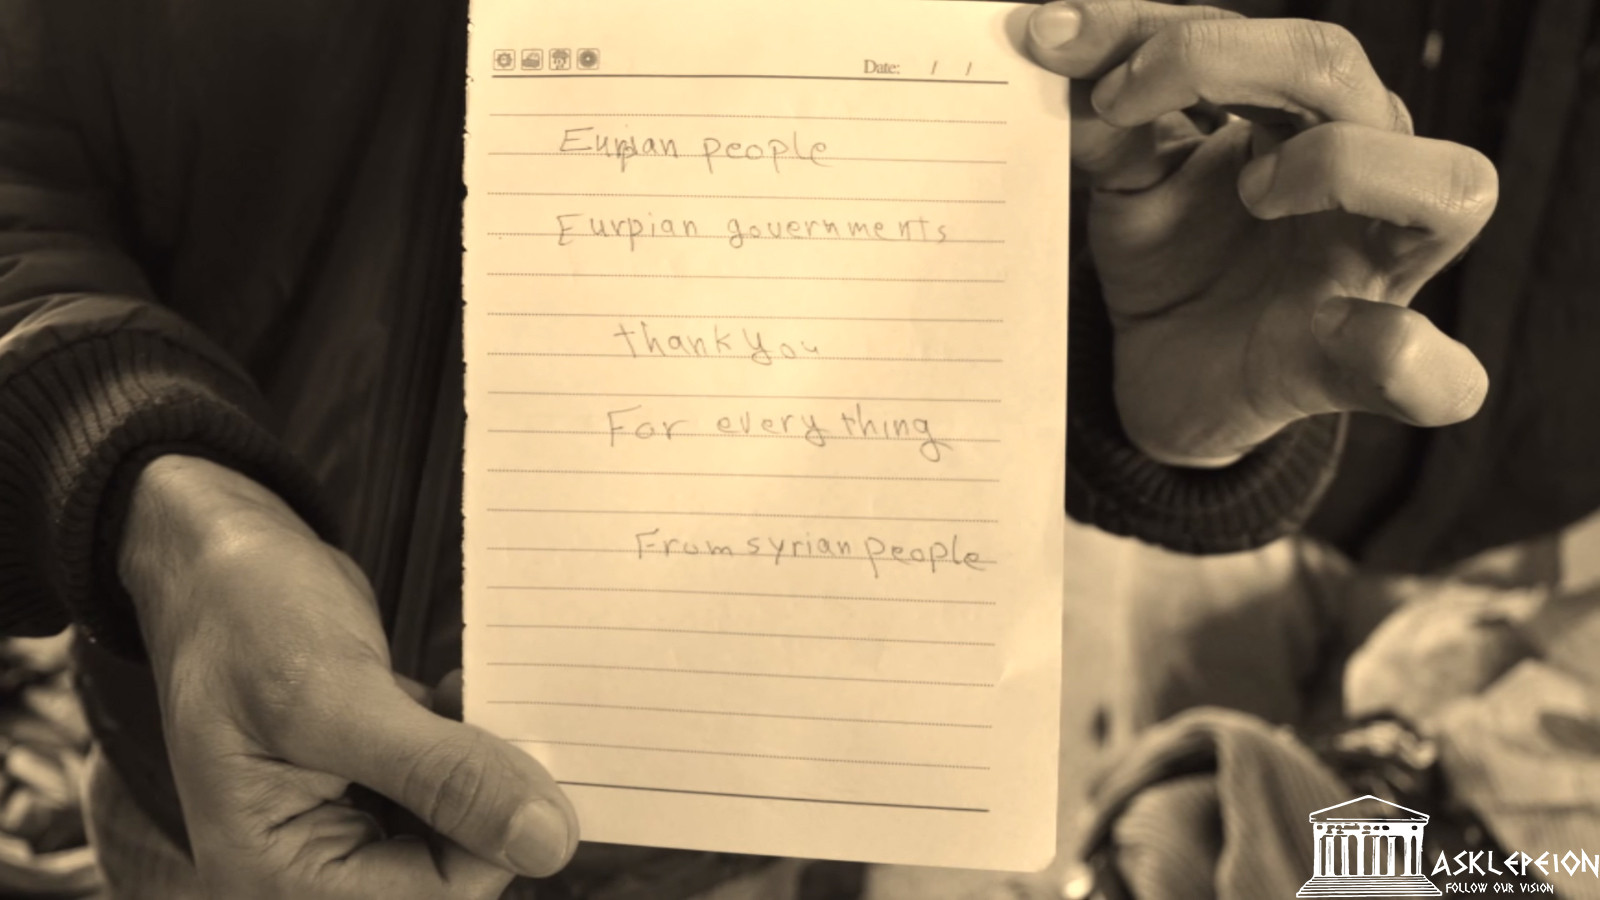 Date: / /
Eurpian people
Eurpian governments
thank you
For every thing
From syrian people
ASKLEPEION
FOLLOW OUR VISION